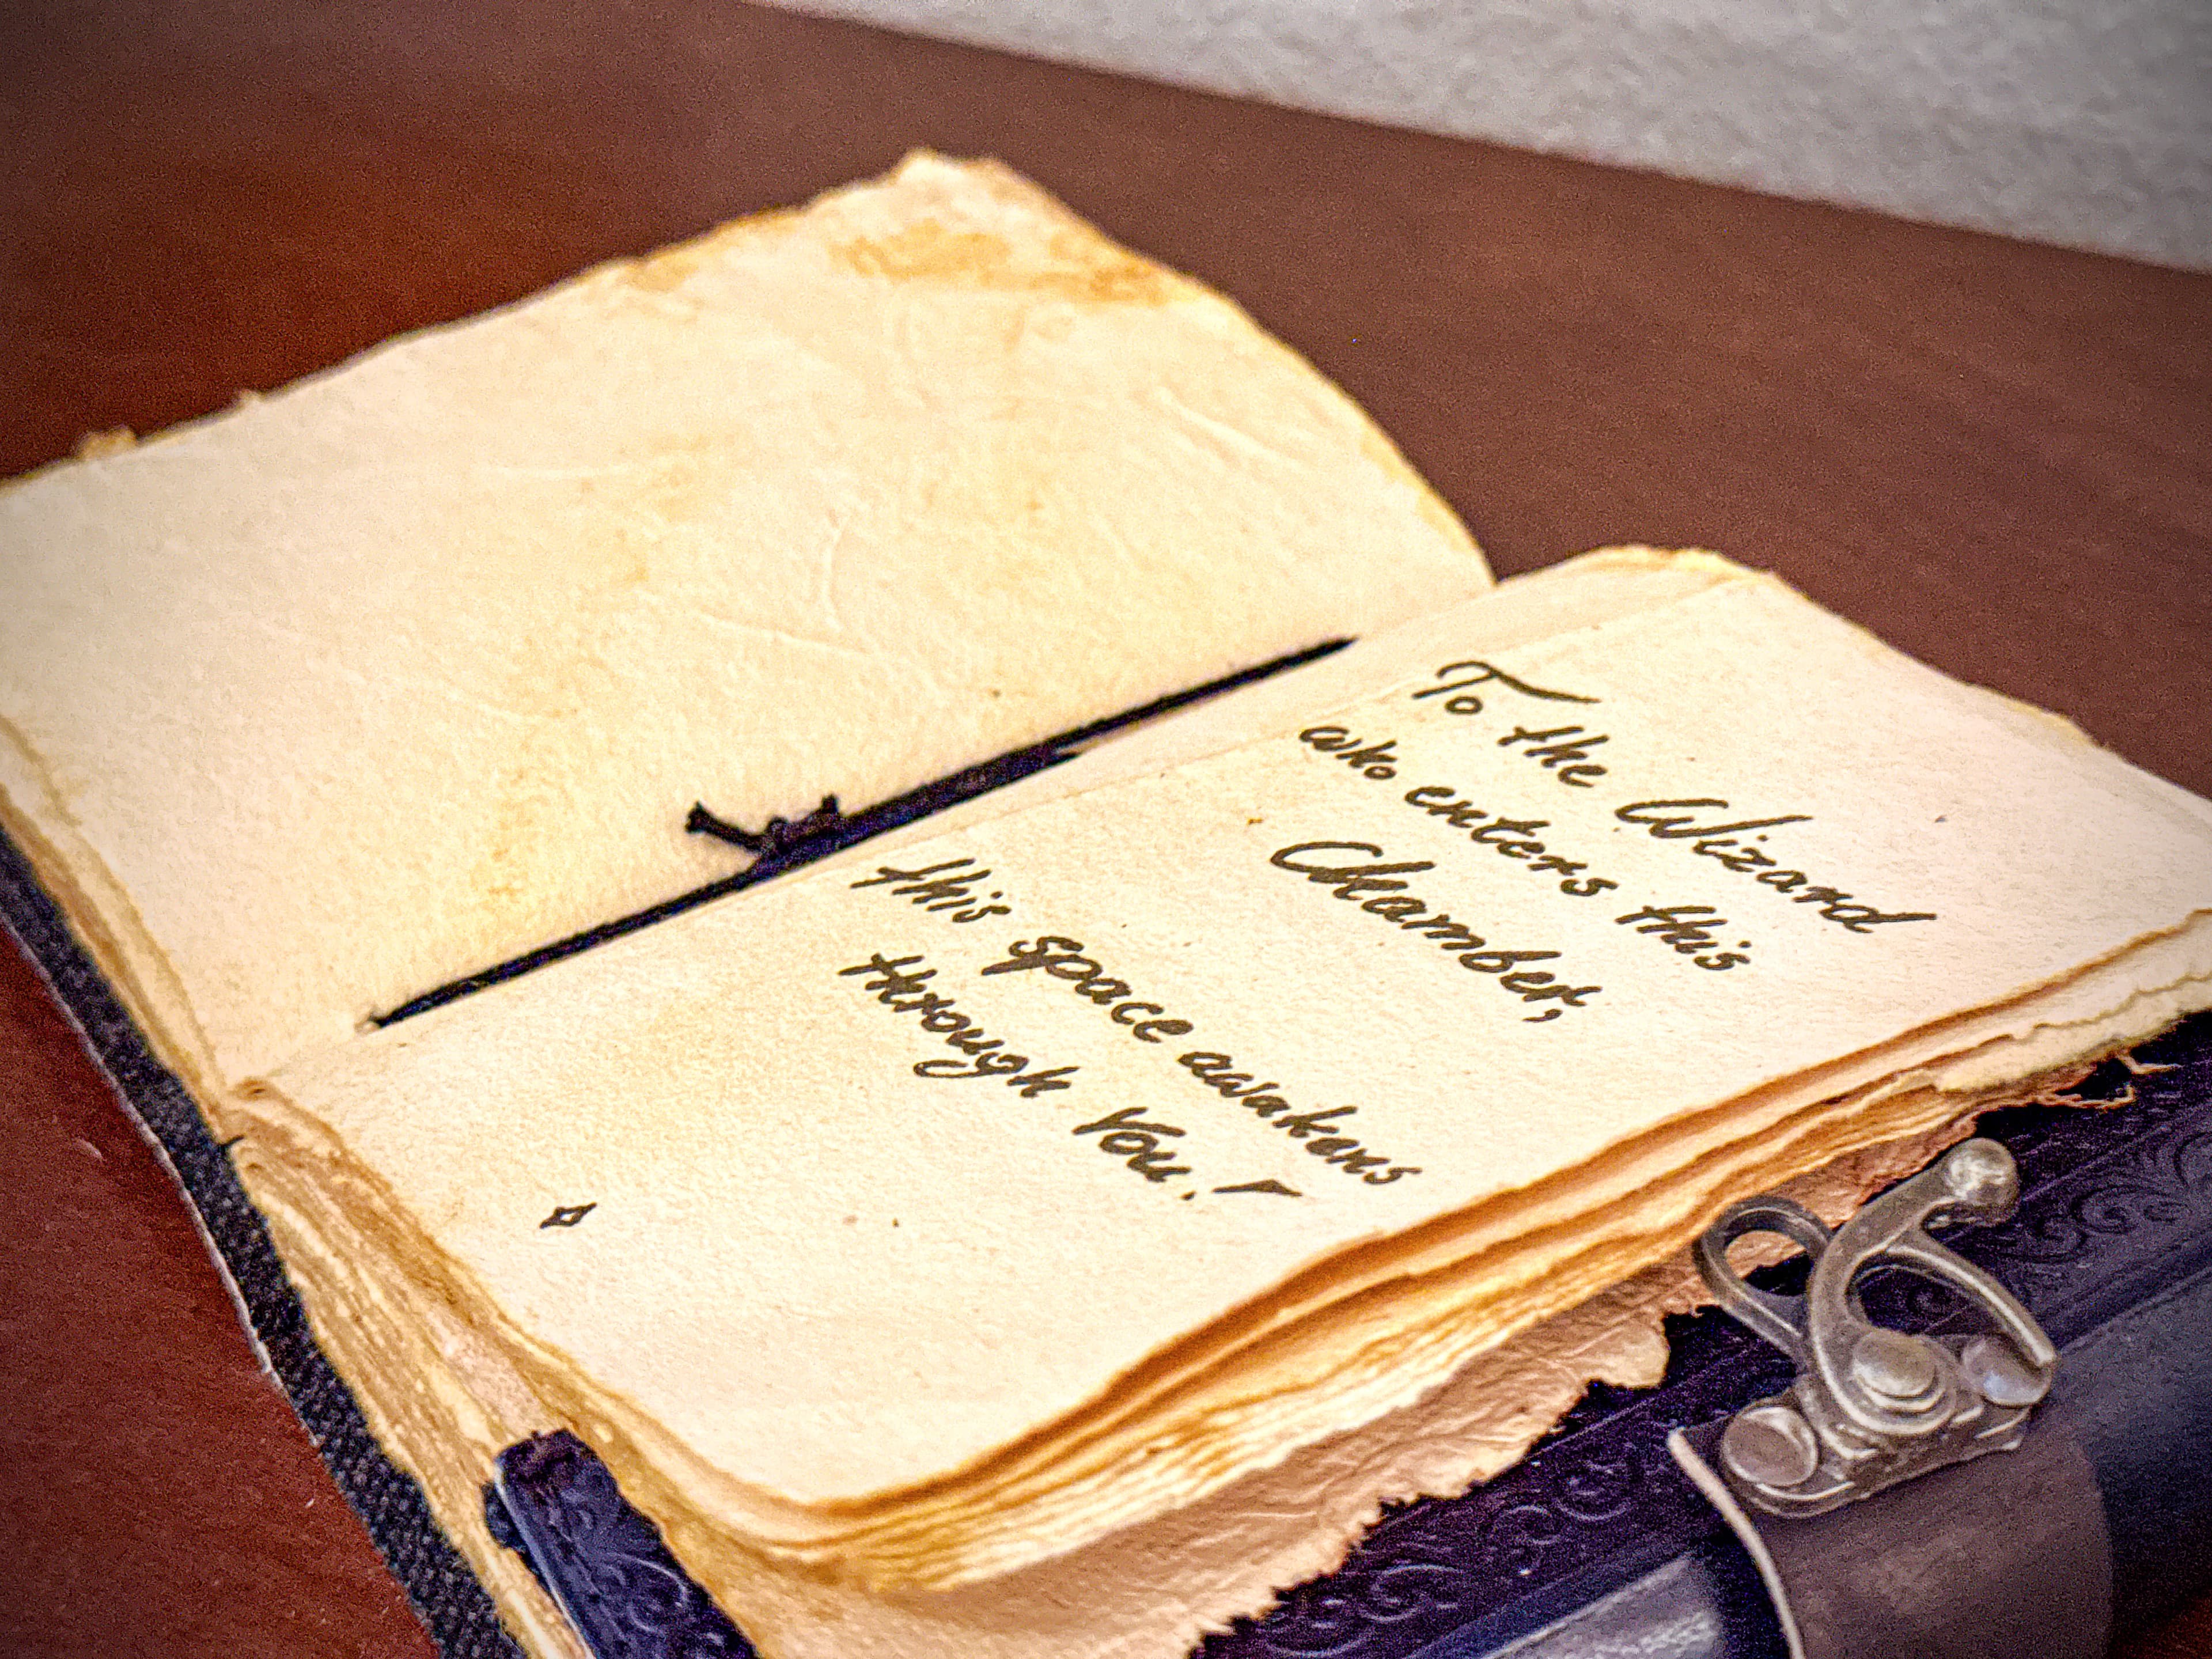 To the Wizard
who enters this
Chamber,
this space awakens
through You!